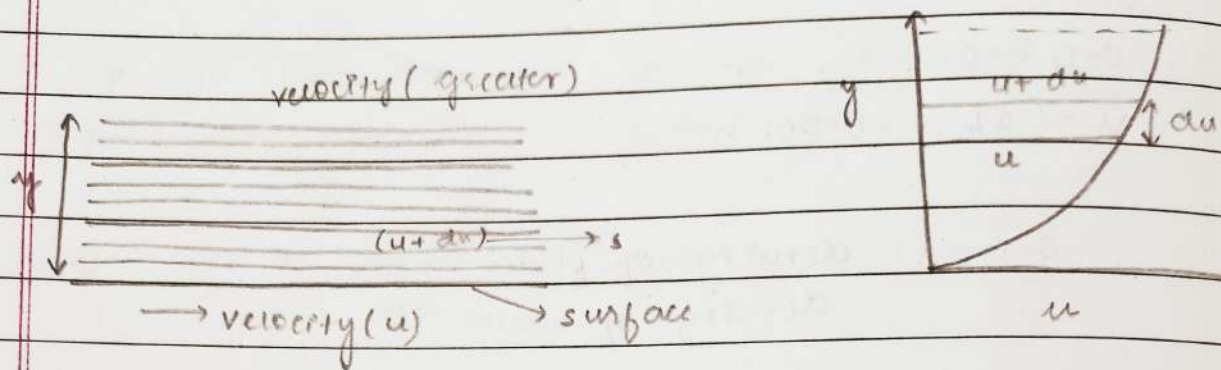 velocity (greater)
y
(u + du) s
velocity (u)
surface
y
u + du
du
u
u